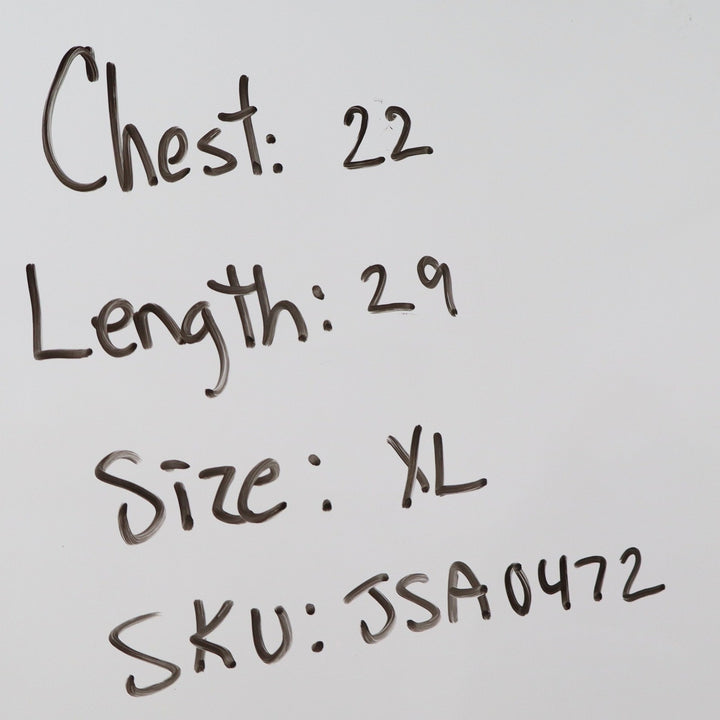 Chest: 22
Length: 29
Size: XL
SKU: JSA0472